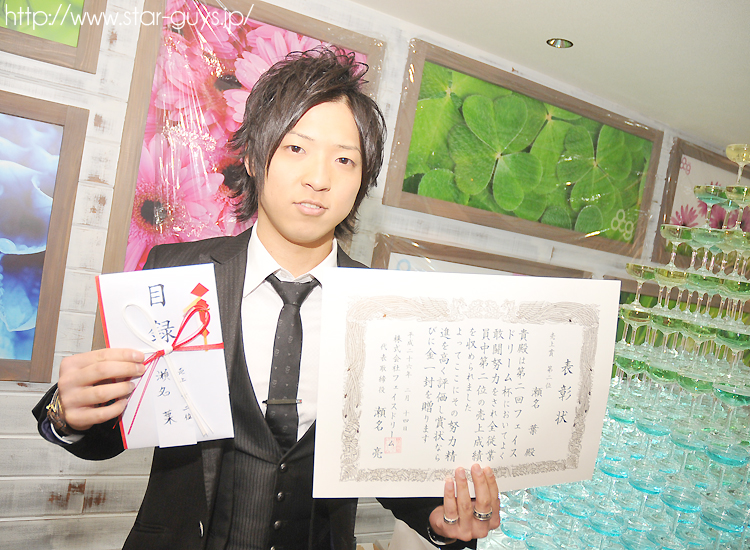 http://www.star-guys.jp/
目録
売上
二位
瀬名 葉
表彰状
売上賞 第二位
瀬名 葉 殿
貴殿は第二回フェイス
ドリーム杯において
敢闘努力をされ全従業
員中第二位の売上成績
を収められました
よってここにその努力精
進を高く評価し賞状なら
びに金一封を贈ります
平成二十六年二月十四日
株式会社フェイスドリーム
代表取締役 瀬名 亮